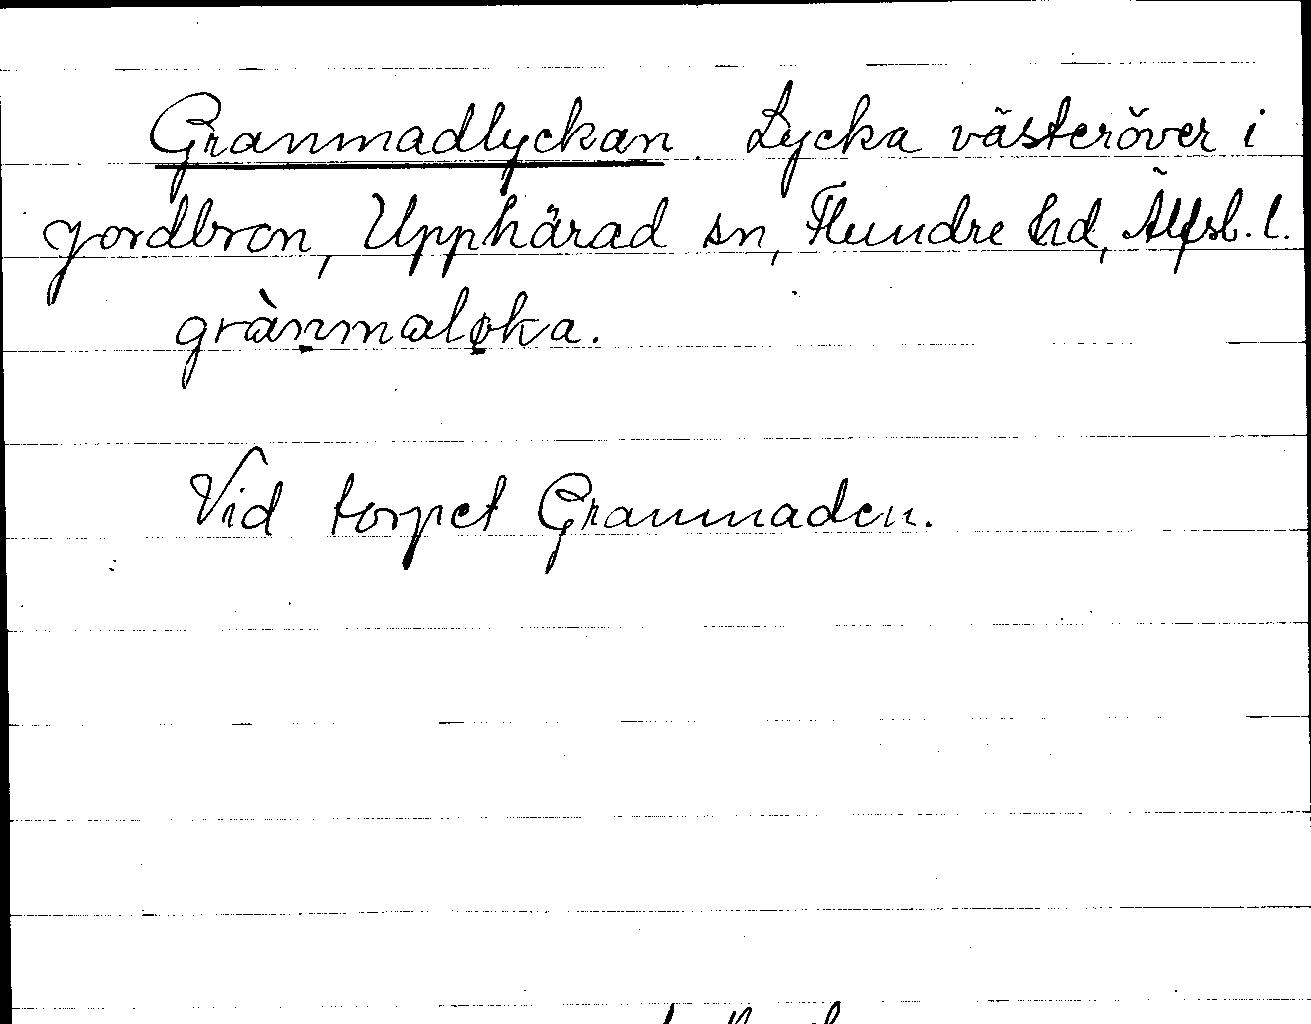 Granmadlyckan. Lycka västeröver i
Jordbron, Upphärad sn, Flundre hd, Älfsb. l.
grànmaløka.
Vid torpet Granmaden.